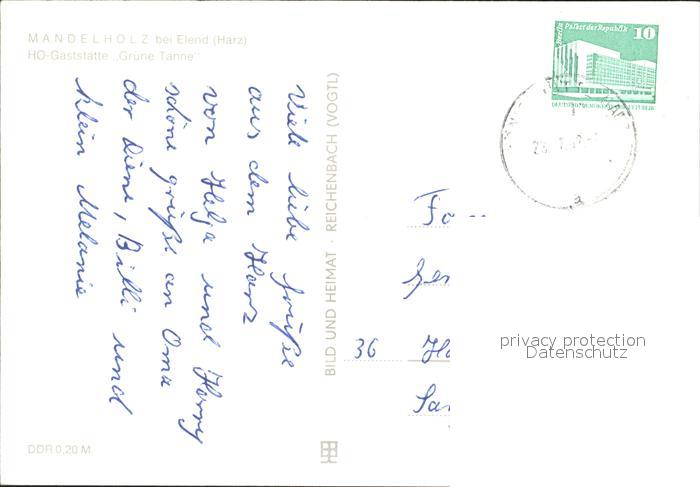 MANDELHOLZ bei Elend (Harz)
HO-Gaststätte „Grüne Tanne"
Viele liebe Grüße
aus dem Harz
von Helga und Harry
schöne grüße an Oma
der Diene, Billi und
klein Melanie
DDR 0,20 M
BILD UND HEIMAT · REICHENBACH (VOGTL)
Berlin Palast der Republik
10
Fa
36
privacy protection
Datenschutz